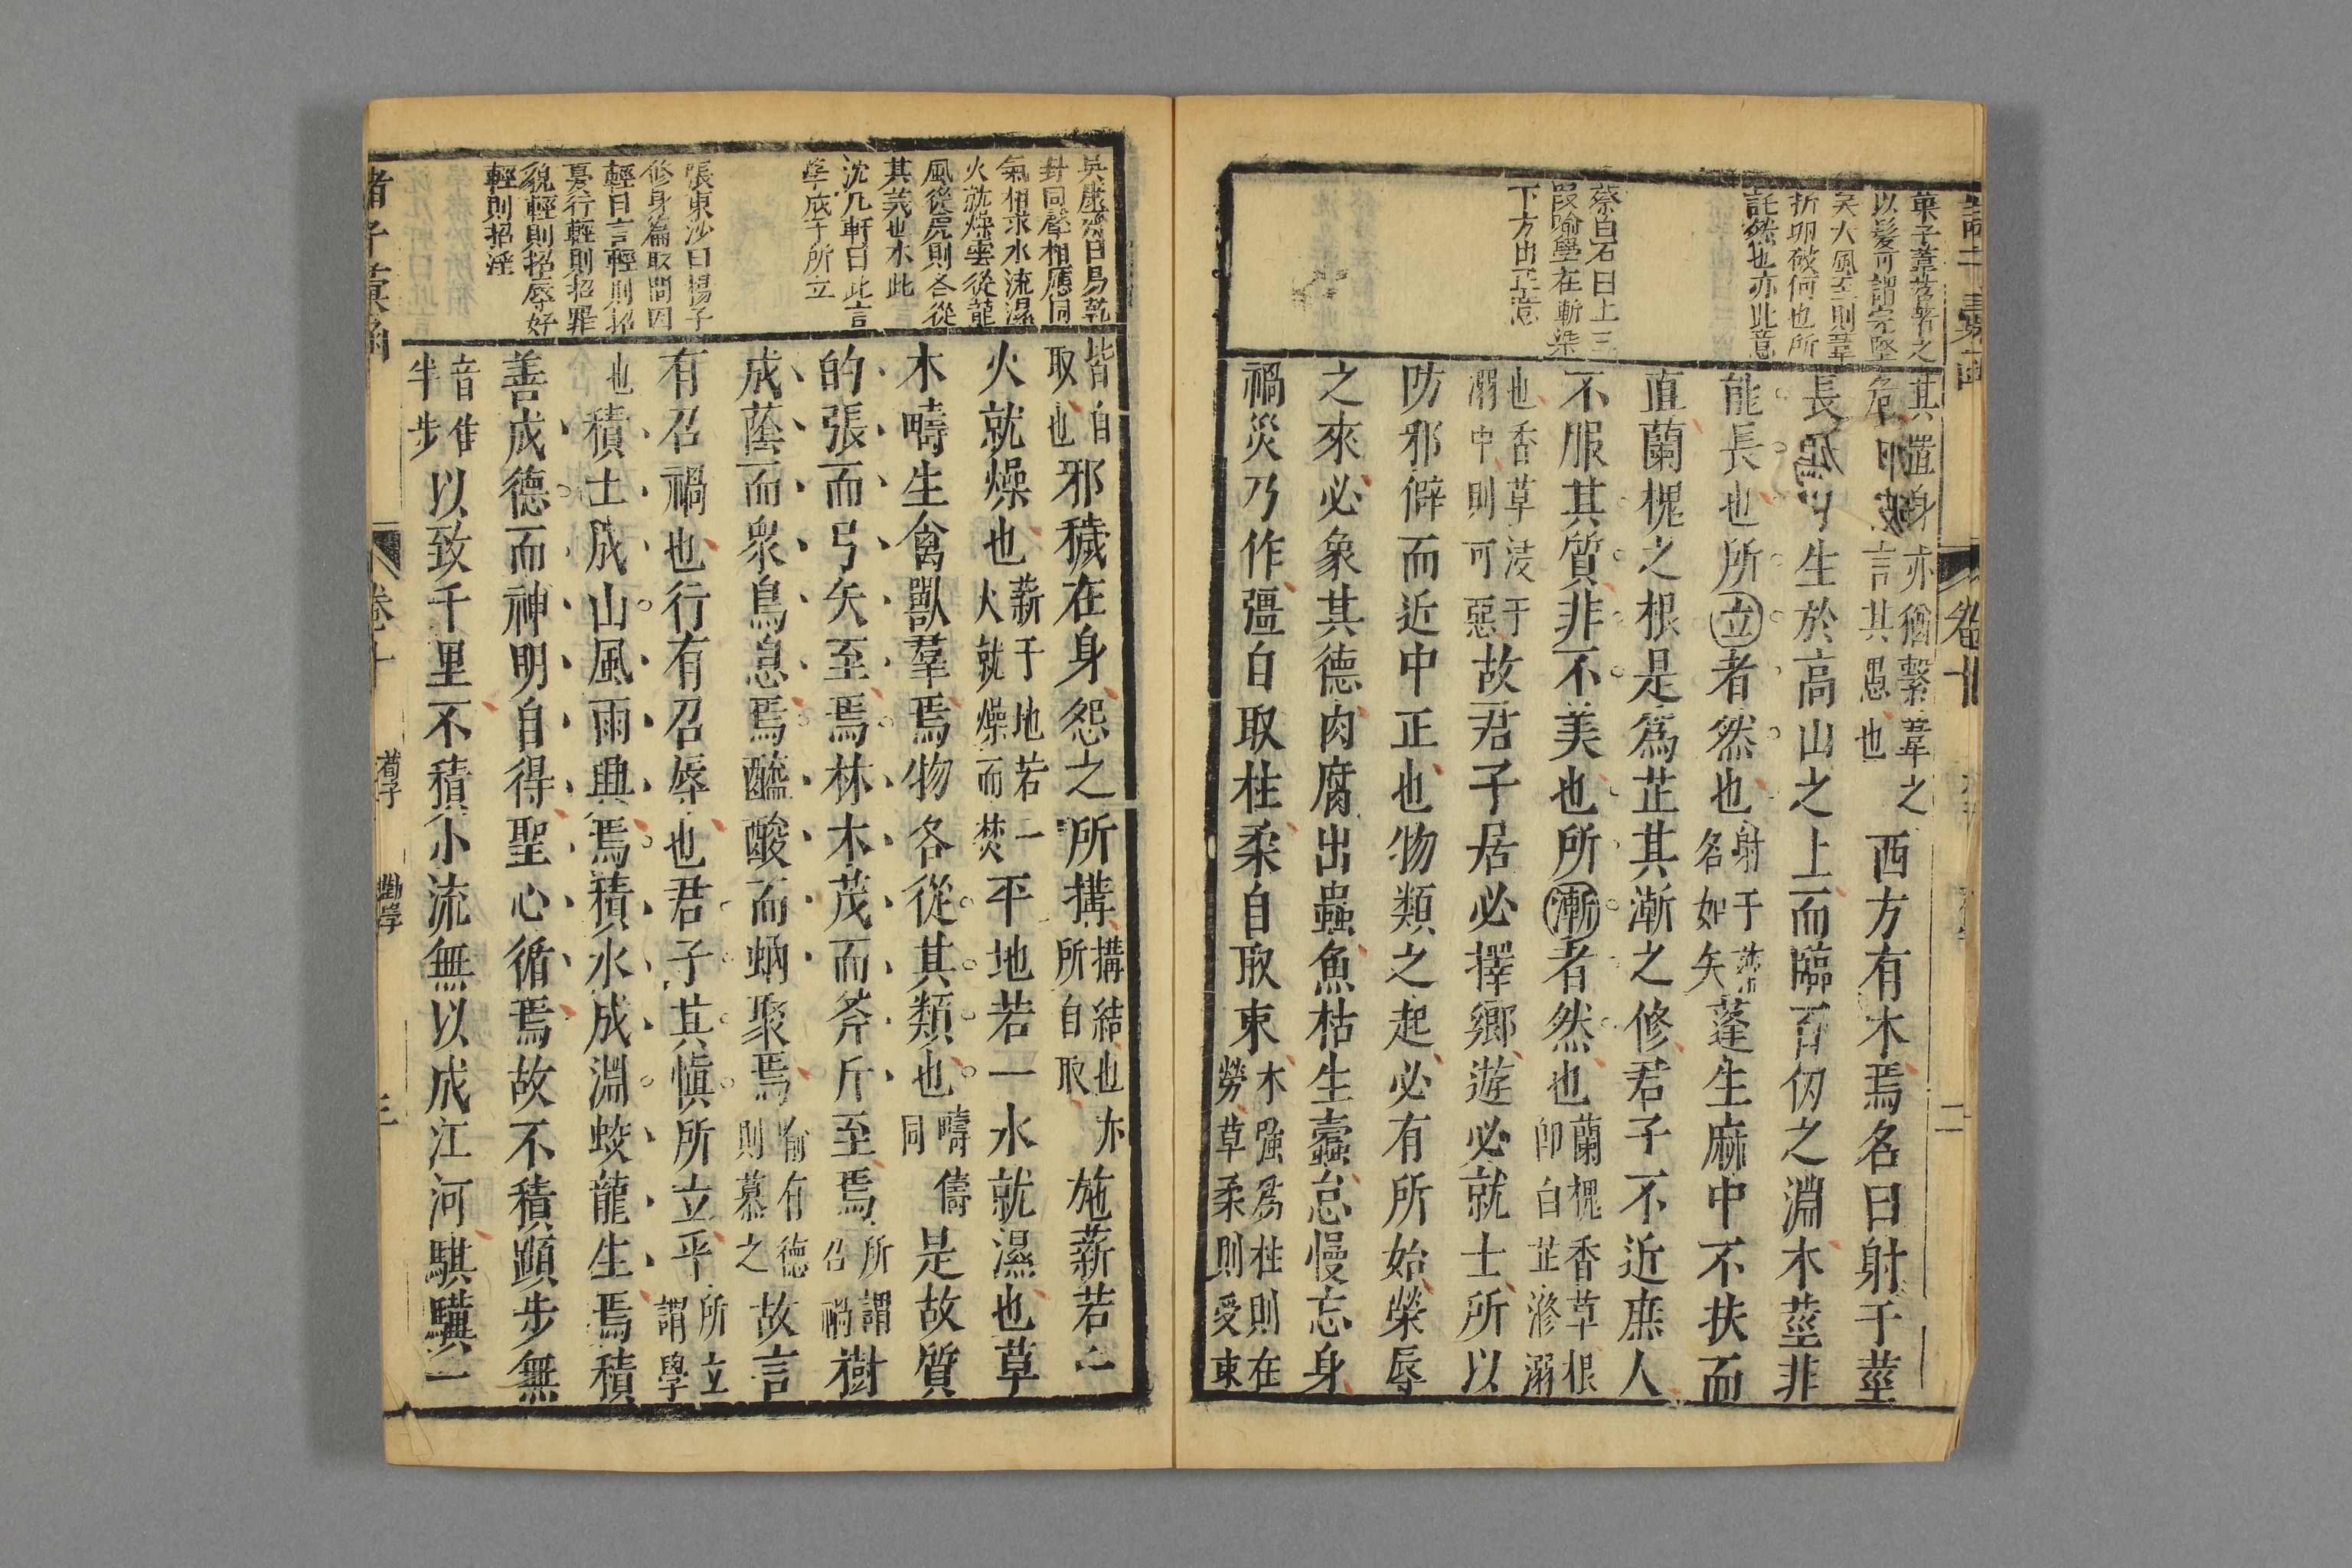 菓子葦苕著之
以髮可謂完堅
矣大風至則葦
折卵破何也所
託然也亦此意
蔡白石曰上三
段喻學在漸染
下方出正意
其置身亦猶繫葦之
危卵破言其愚也
西方有木焉名曰射干莖
長四寸生於高山之上而臨百仞之淵木莖非
能長也所立者然也
射于
名如矢
蓬生麻中不扶而
直蘭槐之根是爲芷其漸之修君子不近庶人
不服其質非不美也所漸者然也
蘭槐香草根
卽白芷滫溺
也香草浸于
溺中則可惡
故君子居必擇鄉遊必就士所以
防邪僻而近中正也物類之起必有所始榮辱
之來必象其德肉腐出蟲魚枯生蠹怠慢忘身
禍災乃作彊自取柱柔自取束
木強爲柱則在
勞草柔則受束
卷十
二
吳康齋曰易乾
卦同聲相應同
氣相求水流濕
火就燥雲從龍
風從虎則各從
其義也本此
沈几軒曰此言
學成于所立
張東沙曰揚子
修身篇取問因
輕曰言輕則招
憂行輕則招罪
貌輕則招辱好
輕則招淫
皆自
取也
邪穢在身怨之所搆
搆結也亦
所自取
施薪若一
火就燥也
薪于地若一
火就燥而焚
平地若一水就濕也草
木疇生禽獸羣焉物各從其類也
疇儔
同
是故質
的張而弓矢至焉林木茂而斧斤至焉
所謂
召禍
樹
成蔭而衆鳥息焉醯酸而蜹聚焉
喻有德
則慕之
故言
有召禍也行有召辱也君子其慎所立乎
所立
謂學
也
積土成山風雨興焉積水成淵蛟龍生焉積
善成德而神明自得聖心循焉故不積蹞步無
音隹
半步
以致千里不積小流無以成江河騏驥一
諸子彙函
卷十
荀子
勸學
三